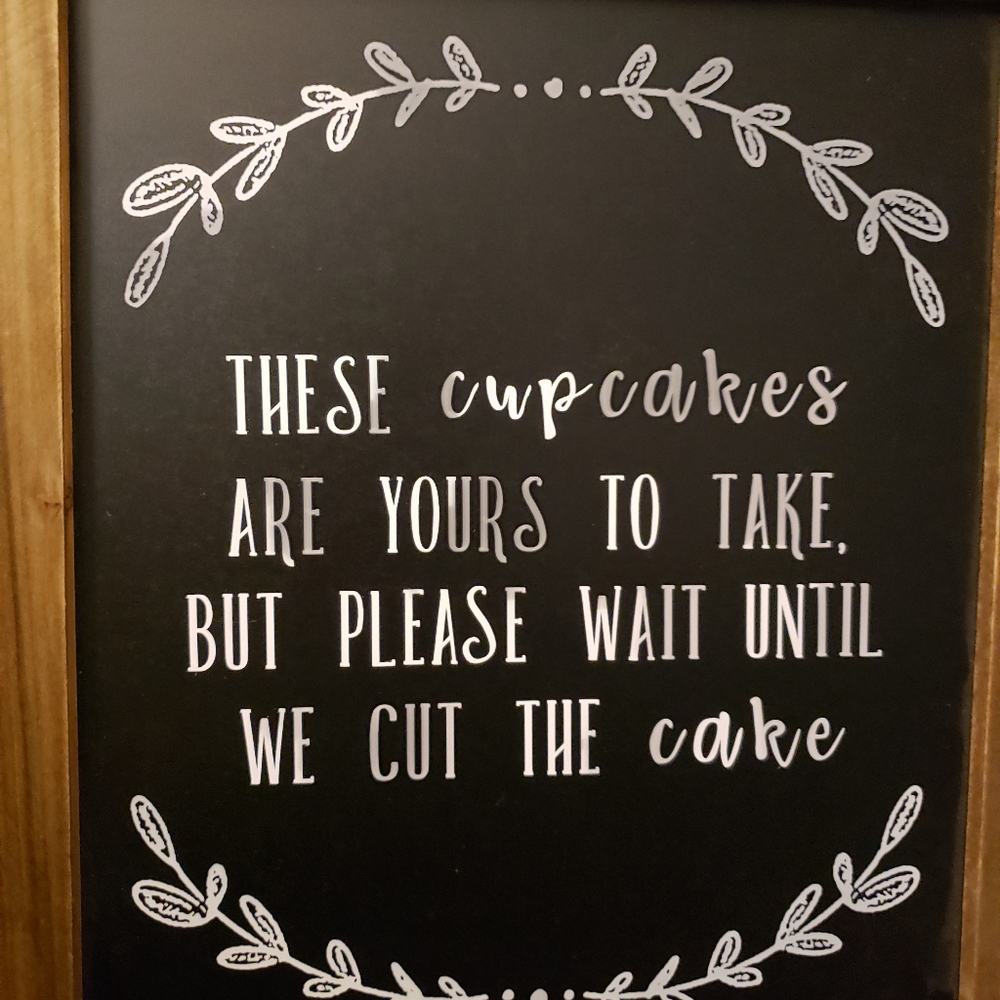 THESE cupcakes
ARE YOURS TO TAKE,
BUT PLEASE WAIT UNTIL
WE CUT THE cake